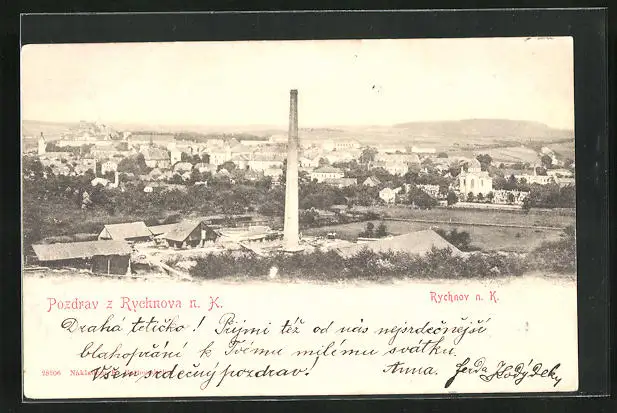 Pozdrav z Rychnova n. K.
Rychnov n. K.
Drahá tetičko! Přijmi též od nás nejsrdečnější
blahopřání k Tvému milému svátku.
Všem srdečný pozdrav! Anna. Ferda
28506 Nákladem